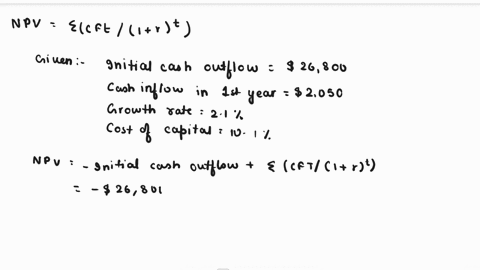 NPV = Σ(CFt / (1+r)^t)
Given:- Initial cash outflow = $26,800
Cash inflow in 1st year = $2,050
Growth rate = 2.1 %
Cost of capital = 10.1 %
NPV = - Initial cash outflow + Σ (CFT/(1+r)^t)
= - $26,801